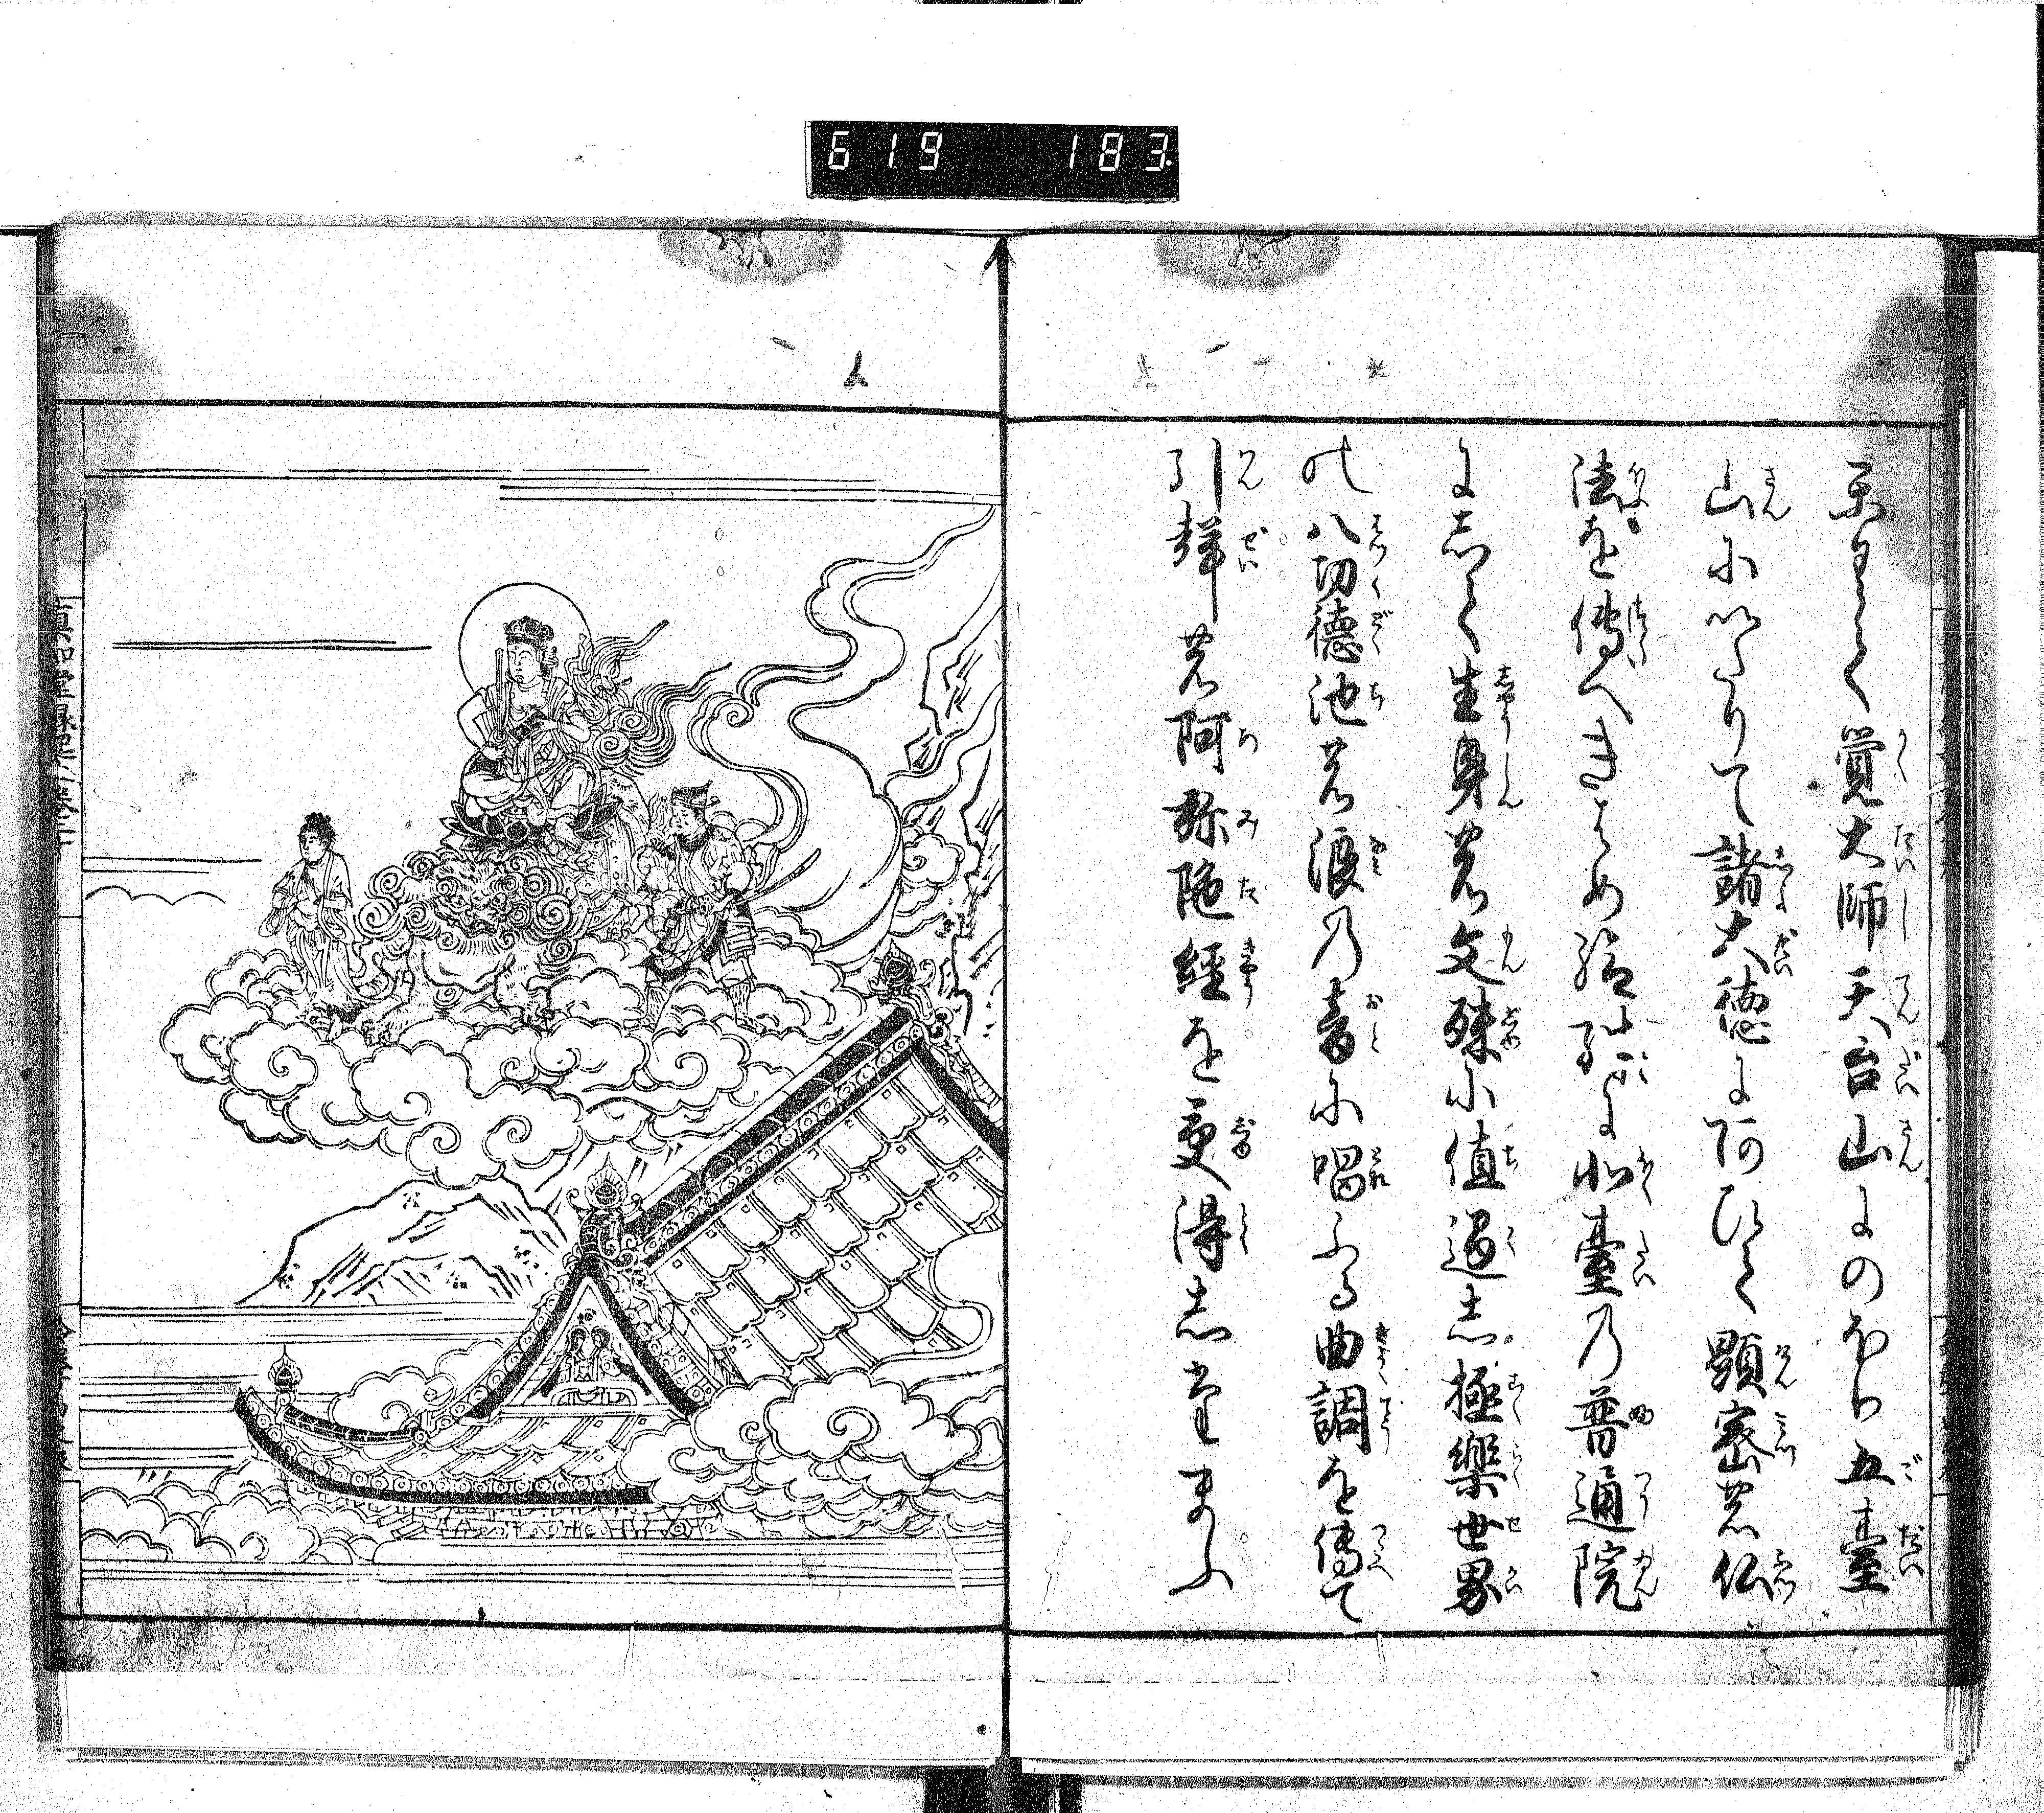 619 183
覚大師天台山にのぼり五臺
山にいたりて諸大徳にあひて顕密の仏
法を傳へきはめ給ふ北臺の普通院
にして生身の文殊に値遇し極樂世界
の八功德池の浪の音に唱ふる曲調を傳て
引聲の阿弥陀經を受得したまふ
真如堂縁起